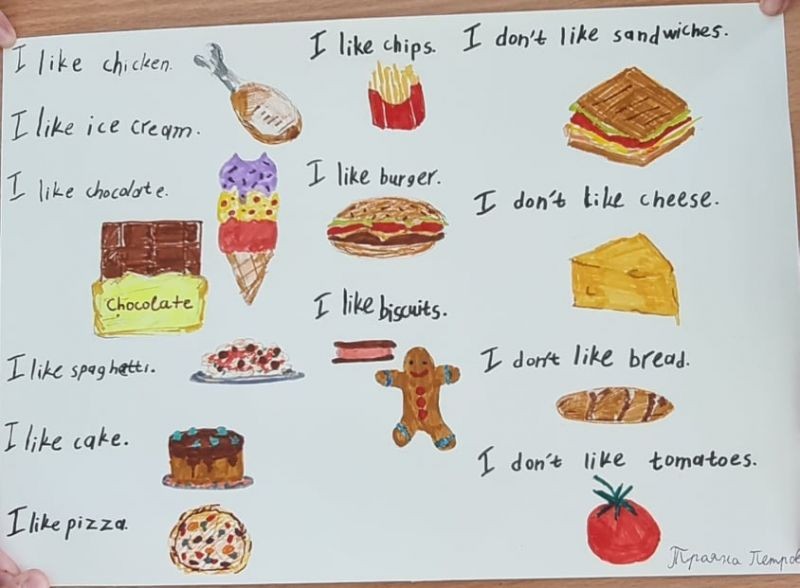 I like chicken.
I like ice cream.
I like chocolate.
Chocolate
I like spaghetti.
I like cake.
I like pizza.
I like chips.
I like burger.
I like biscuits.
I don't like sandwiches.
I don't like cheese.
I don't like bread.
I don't like tomatoes.
Траяна